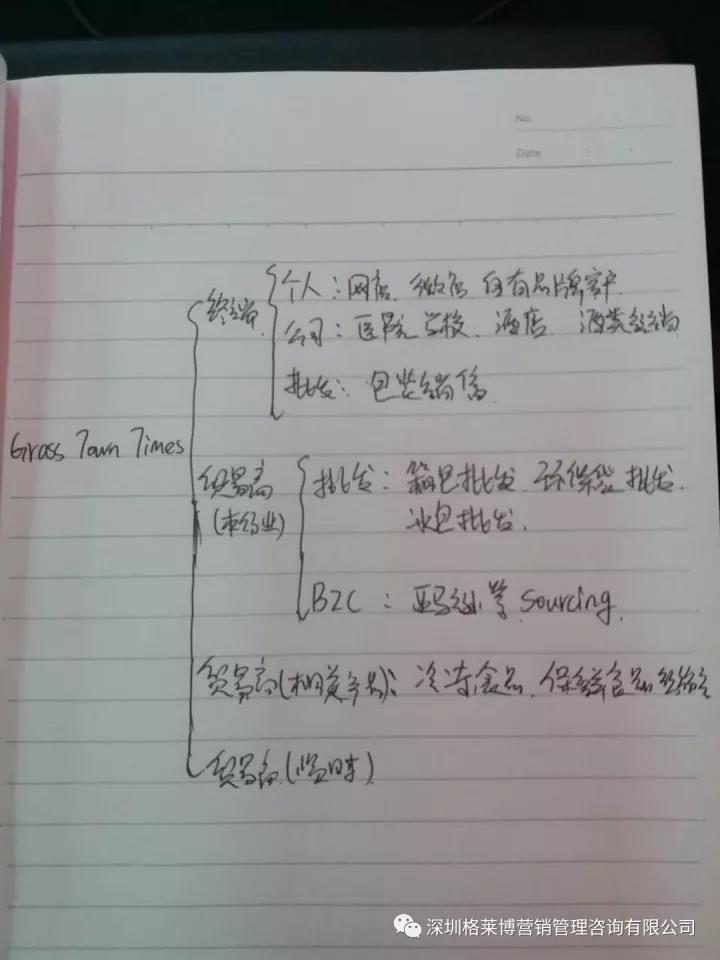 No.
Date
终端
个人：网店、微店 自有品牌客户
公司：医院 学校、酒店、酒类经销
批发：包装销售
Grass Town Times
贸易商
(本行业)
批发：箱包批发、环保袋批发、
冰包批发.
B2C：亚马逊等 sourcing.
贸易商(相关产品)：冷冻食品、保鲜食品经销
贸易商(临时)
深圳格莱博营销管理咨询有限公司